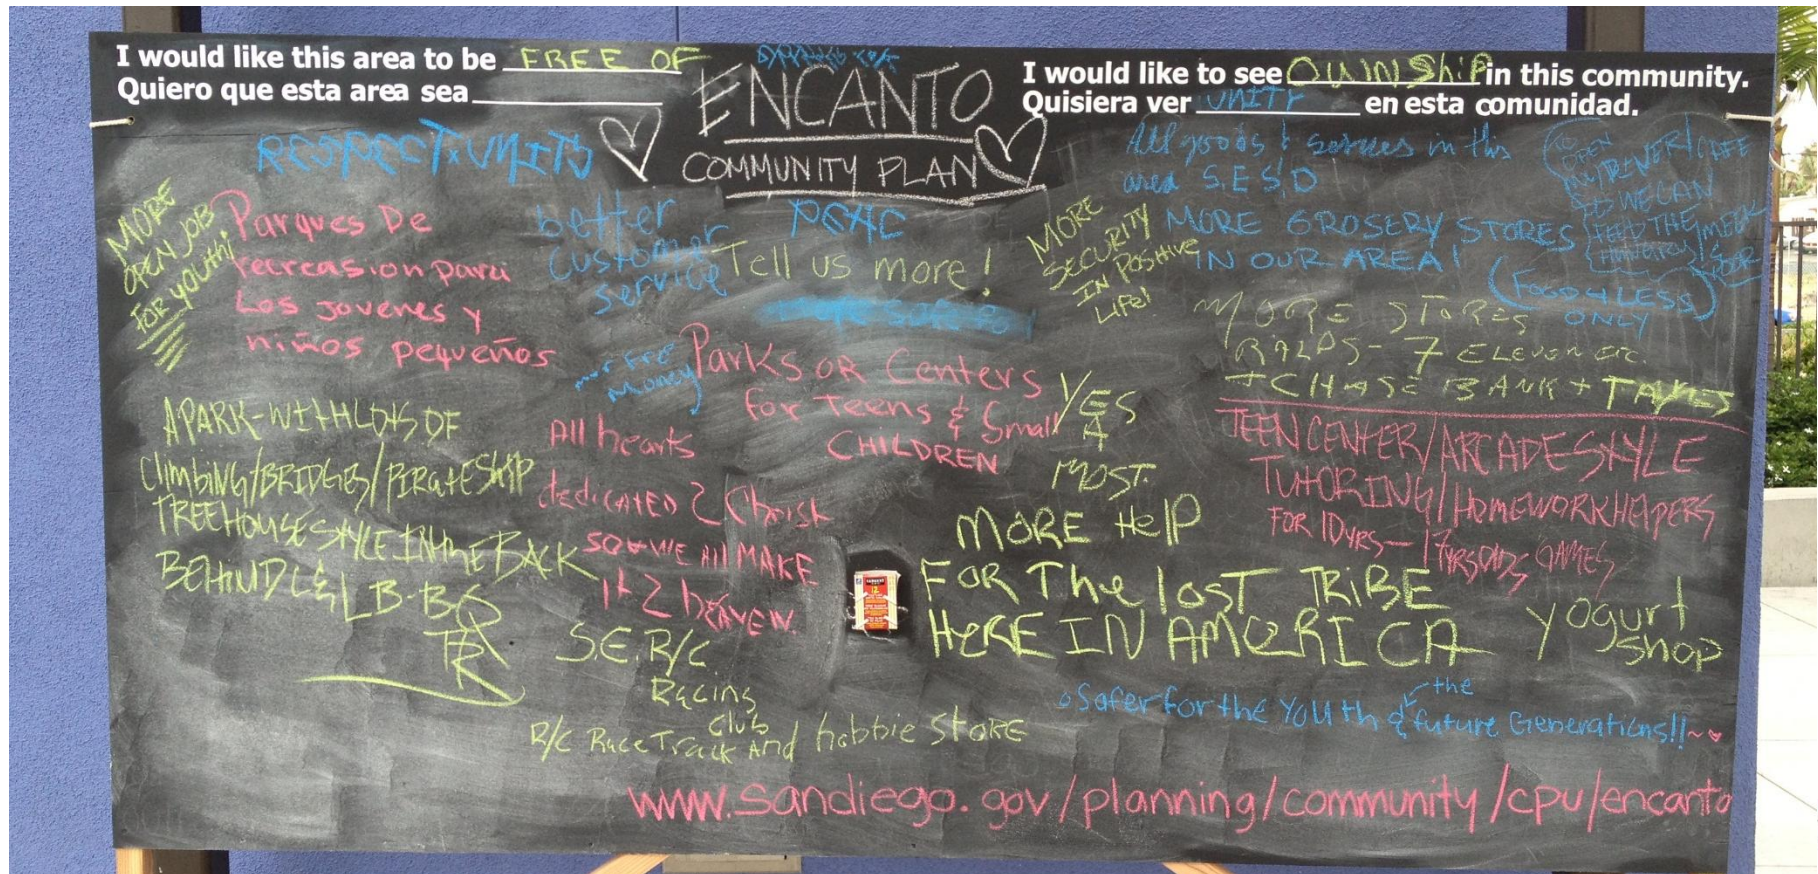 I would like this area to be FREE OF
Quiero que esta area sea
ENCANTO
COMMUNITY PLAN
I would like to see OWNShip in this community.
Quisiera ver UNITY en esta comunidad.
RESPECT x UNITY
MORE
OPEN JOB
FOR YOUTH!
Parques De
recreasion para
Los jovenes y
niños pequeños
better
Customer
service
PEAC
Tell us more!
MORE
SECURITY
IN POSITIVE
LIFE!
All goods & servues in this
area S.E.S.D
MORE GROSERY STORES
IN OUR AREA!
(FOOD 4 LESS)
ONLY
TO
OPEN
CAFE
WE CAN
FEED THE
HUNGRY
MEEK
POOR
MORE STORES
RALPS - 7 ELEVEN etc.
+ CHASE BANK + TAXES
FREE
Money
Parks OR Centers
for Teens & Small
CHILDREN
YES
A
MOST
A PARK-WITH LOTS OF
ClimbiNG/BRIDGES/PIRATE SHIP
TREEHOUSE STYLE IN THE BACK
BEHIND L & L B-BQ
All hearts
dedicATED 2 Christ
SO WE All MAKE
it 2 heAVEN.
TEEN CENTER/ARCADE STYLE
TUTORING/HOMEWORK HELPERS
FOR 10YRS-17YRSOLDS GAMES
MORE HelP
FOR The lost TRiBE
HERE IN AMERICA
yogurt
shop
S.E.R/C
Racing
Club
R/C Race Track And hobbie STORE
Safer for the YOUth & the future Generations!!
www.sandiego.gov/planning/community/cpu/encanto